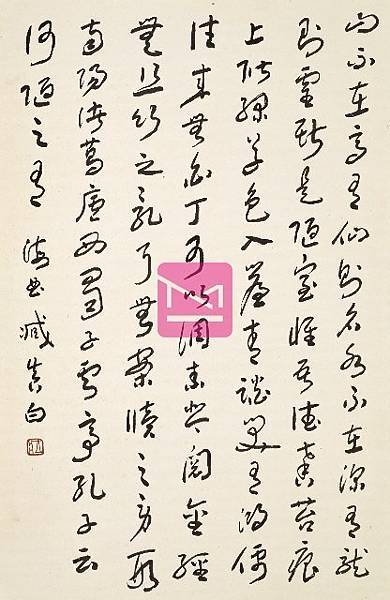 山不在高有仙則名水不在深有龍
則靈斯是陋室惟吾德馨苔痕
上階綠草色入簾青談笑有鴻儒
往來無白丁可以調素琴閱金經
無絲竹之亂耳無案牘之勞形
南陽諸葛廬西蜀子雲亭孔子云
何陋之有 海曲臧真白